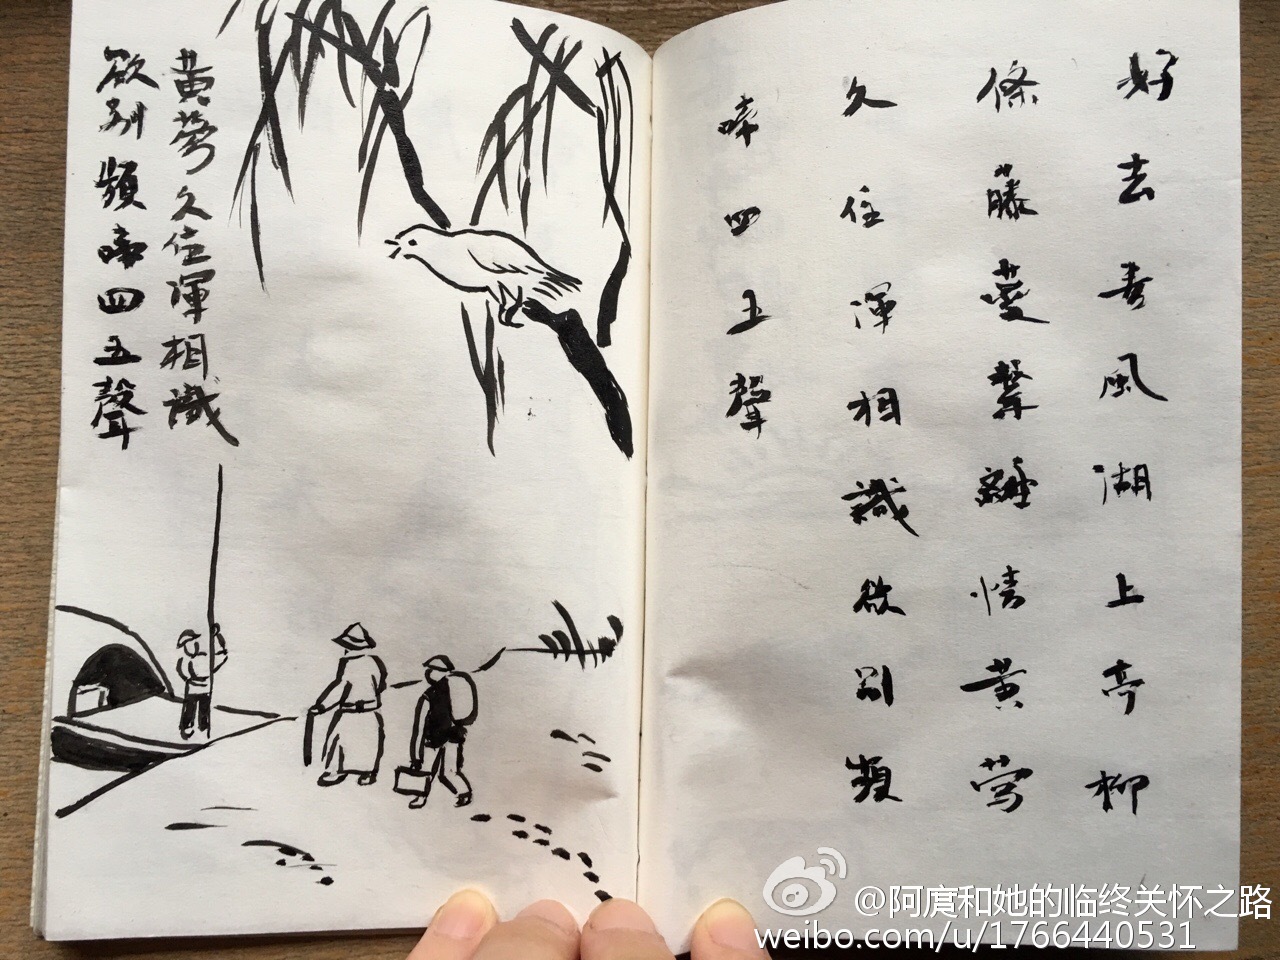 好去春風湖上亭柳
條藤蔓繫離情黄莺
久住渾相識欲别頻
啼四五聲
黄莺久住渾相識
欲别頻啼四五聲
@阿賡和她的临终关怀之路
weibo.com/u/1766440531